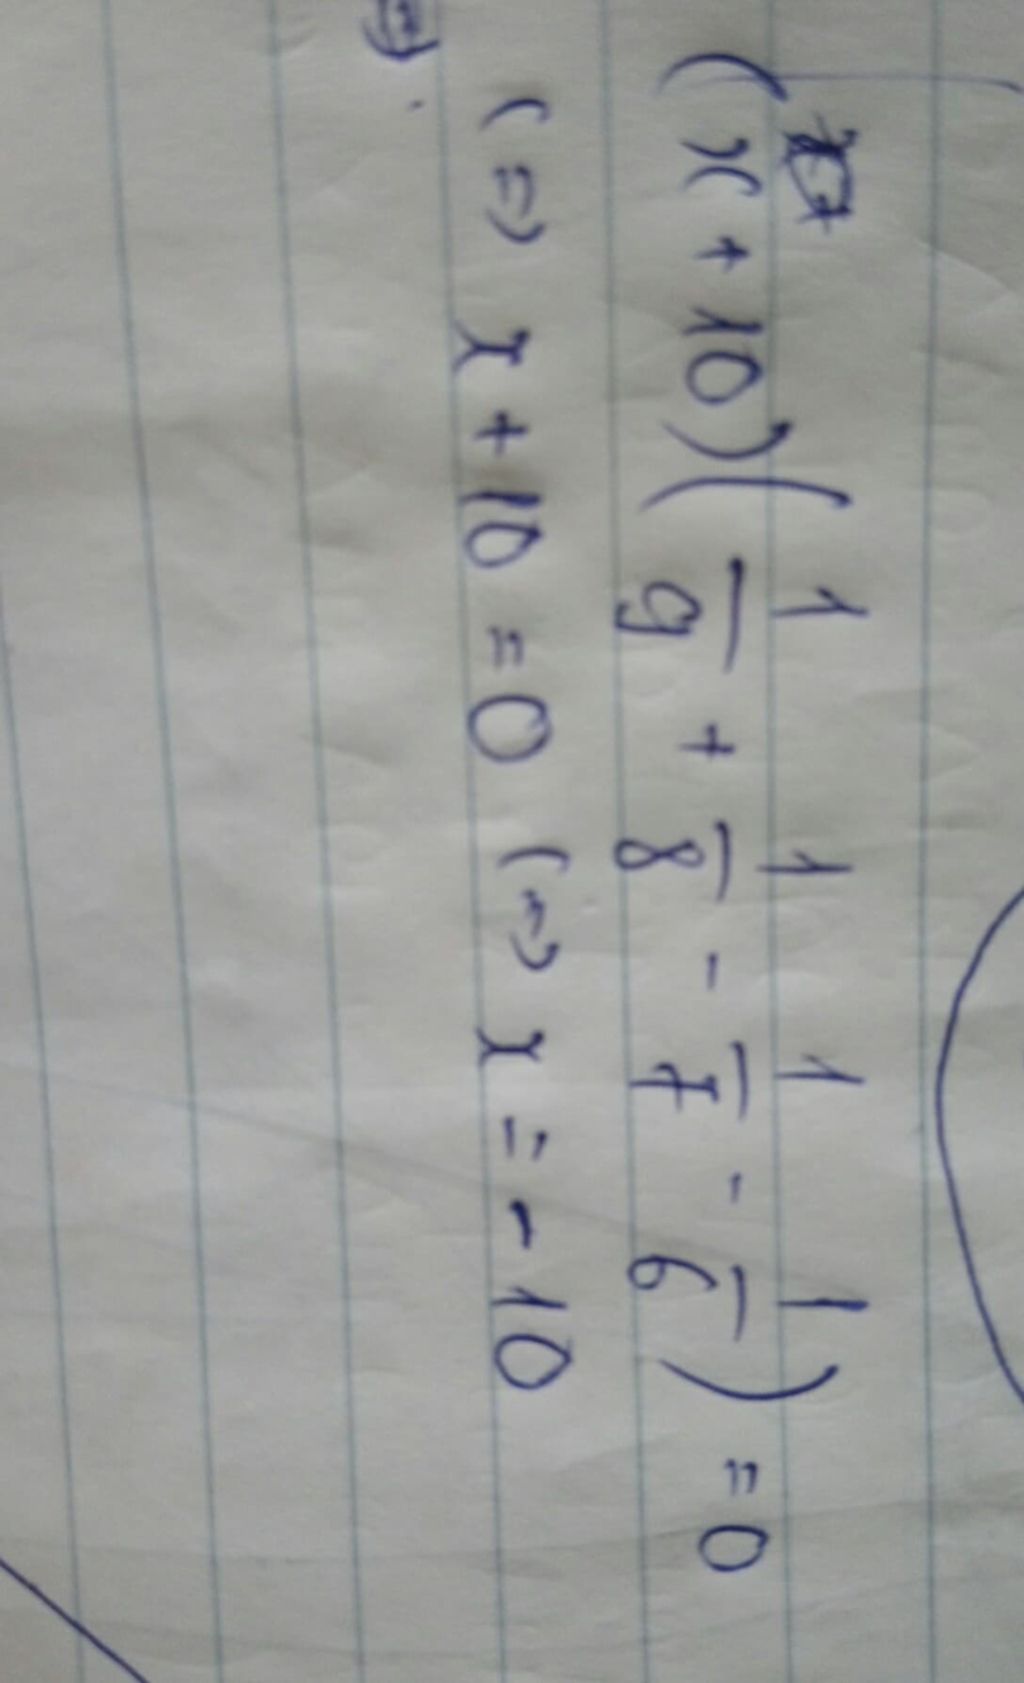 (x + 10)(1/9 + 1/8 - 1/7 - 1/6) = 0
(=) x + 10 = 0 (=) x = -10